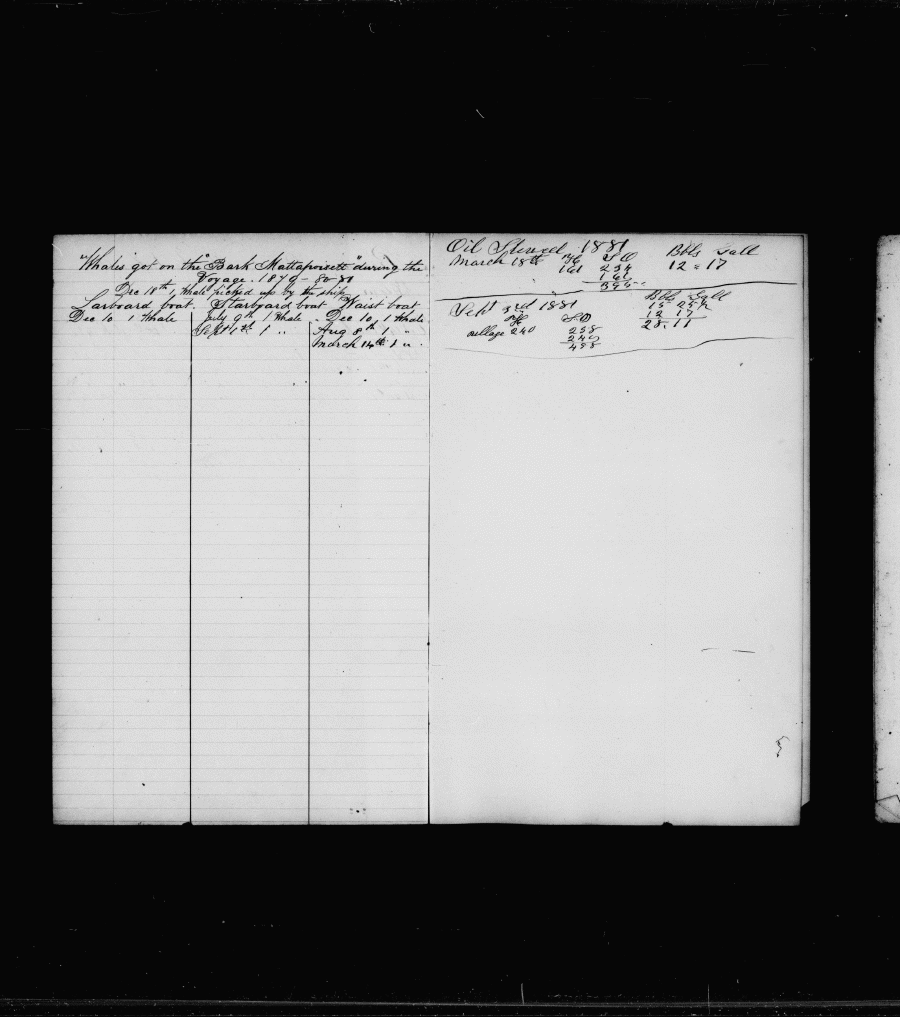 "Whales got on the "Bark Mattapoisett" during the
Voyage. 1879 - 80-81
Dec 18th 1 Whale picked up by the ship
Larboard boat Starboard boat Waist boat
Dec 10 1 Whale July 9th 1 Whale Dec 10, 1 Whale
Sept 1st 1 " Aug 8th 1 "
March 14th 1 "
Oil Stowed 1881
March 18th SO Bbls Gall
161 234 12 = 17
161
395
Sept 3rd 1881 Bbls Gall
SO 15 25
ullage 240 258 12 17
240 28.11
498